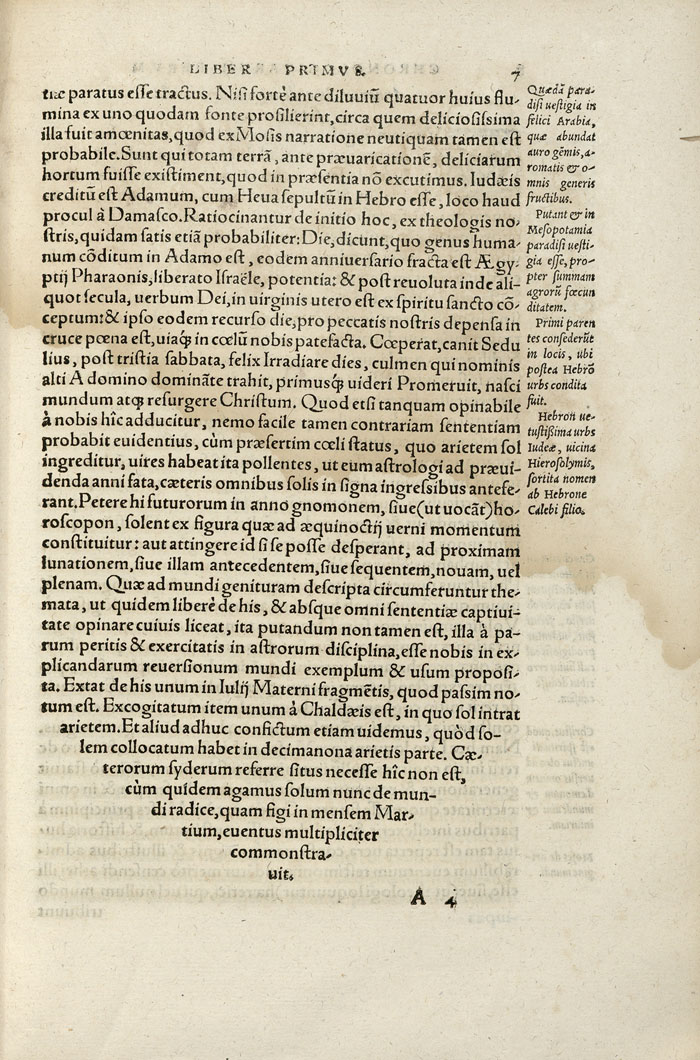 LIBER PRIMVS. 7
tuc paratus esse tractus. Nisi fortè ante diluuiũ quatuor huius flu-
mina ex uno quodam fonte prosilierint, circa quem deliciosissima
illa fuit amœnitas, quod ex Mosis narratione neutiquam tamen est
probabile. Sunt qui totam terrã, ante præuaricationẽ, deliciarum
hortum fuisse existiment, quod in præsentia nõ excutimus. Iudæis
creditũ est Adamum, cum Heua sepultũ in Hebro esse, loco haud
procul à Damasco. Ratiocinantur de initio hoc, ex theologis no-
stris, quidam satis etiã probabiliter: Die, dicunt, quo genus huma-
num cõditum in Adamo est, eodem anniuersario fracta est Ægy-
ptij Pharaonis, liberato Israële, potentia: & post reuoluta inde ali-
quot secula, uerbum Dei, in uirginis utero est ex spiritu sancto cõ-
ceptum: & ipso eodem recurso die, pro peccatis nostris depensa in
cruce pœna est, uiaq́ in cœlũ nobis patefacta. Cœperat, canit Sedu
lius, post tristia sabbata, felix Irradiare dies, culmen qui nominis
alti A domino dominãte trahit, primusq́ uideri Promeruit, nasci
mundum atq́ resurgere Christum. Quod etsi tanquam opinabile
à nobis hîc adducitur, nemo facile tamen contrariam sententiam
probabit euidentius, cùm præsertim cœli status, quo arietem sol
ingreditur, uires habeat ita pollentes, ut eum astrologi ad præui-
denda anni fata, cæteris omnibus solis in signa ingressibus antefe-
rant. Petere hi futurorum in anno gnomonem, siue (ut uocãt) ho-
roscopon, solent ex figura quæ ad æquinoctij uerni momentum
constituitur: aut attingere id si se posse desperant, ad proximam
lunationem, siue illam antecedentem, siue sequentem, nouam, uel
plenam. Quæ ad mundi genituram descripta circumferuntur the-
mata, ut quidem liberè de his, & absque omni sententiæ captiui-
tate opinare cuiuis liceat, ita putandum non tamen est, illa à pa-
rum peritis & exercitatis in astrorum disciplina, esse nobis in ex-
plicandarum reuersionum mundi exemplum & usum proposi-
ta. Extat de his unum in Iulij Materni fragmẽtis, quod passim no-
tum est. Excogitatum item unum à Chaldæis est, in quo sol intrat
arietem. Et aliud adhuc confictum etiam uidemus, quòd so-
lem collocatum habet in decimanona arietis parte. Cæ-
terorum syderum referre situs necesse hîc non est,
cùm quidem agamus solum nunc de mun-
di radice, quam figi in mensem Mar-
tium, euentus multipliciter
commonstra-
uit.
A 4
Quædã para-
disi uestigia in
felici Arabia,
quæ abundat
auro gẽmis, a-
romatis & o-
mnis generis
fructibus.
Putant & in
Mesopotamia
paradisi uesti-
gia esse, pro-
pter summam
agrorũ fœcun
ditatem.
Primi paren
tes consederũt
in locis, ubi
postea Hebrõ
urbs condita
fuit.
Hebron ue-
tustissima urbs
Iudeæ, uicina
Hierosolymis,
sortita nomen
ab Hebrone
Calebi filio.